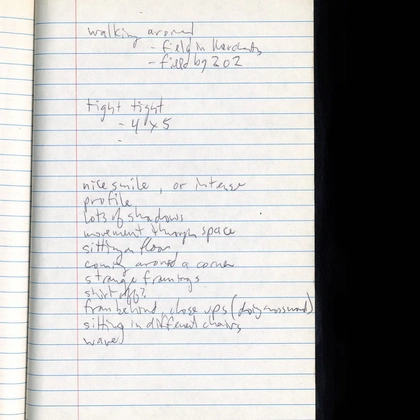 walking around
- field in
- field by 202
tight tight
- 4 x 5
-
nice smile, or intense
profile
lots of shadows
movement through space
sitting on floor
coming around a corner
strange framings
shirt off?
from behind, close ups (
sitting in different chairs
wave